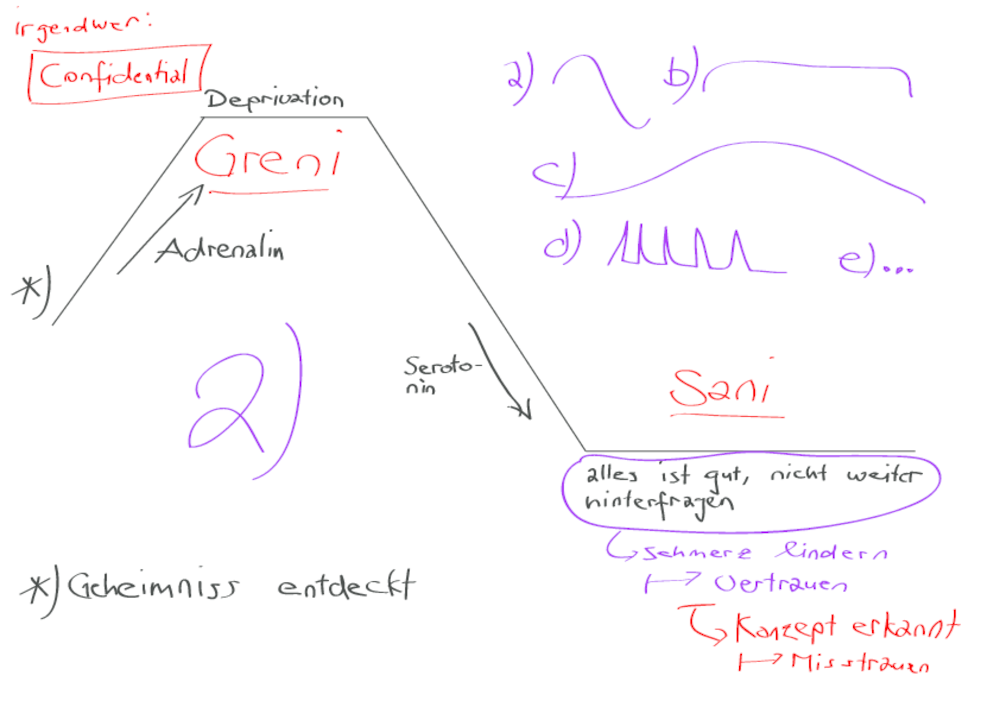 irgendwer:
Confidential
Deprivation
Greni
Adrenalin
*)
a)
b)
c)
d)
e)...
a)
Seroto-
nin
Sani
alles ist gut, nicht weiter
hinterfragen
Schmerz lindern
Vertrauen
Konzept erkannt
Misstrauen
*) Geheimniss entdeckt